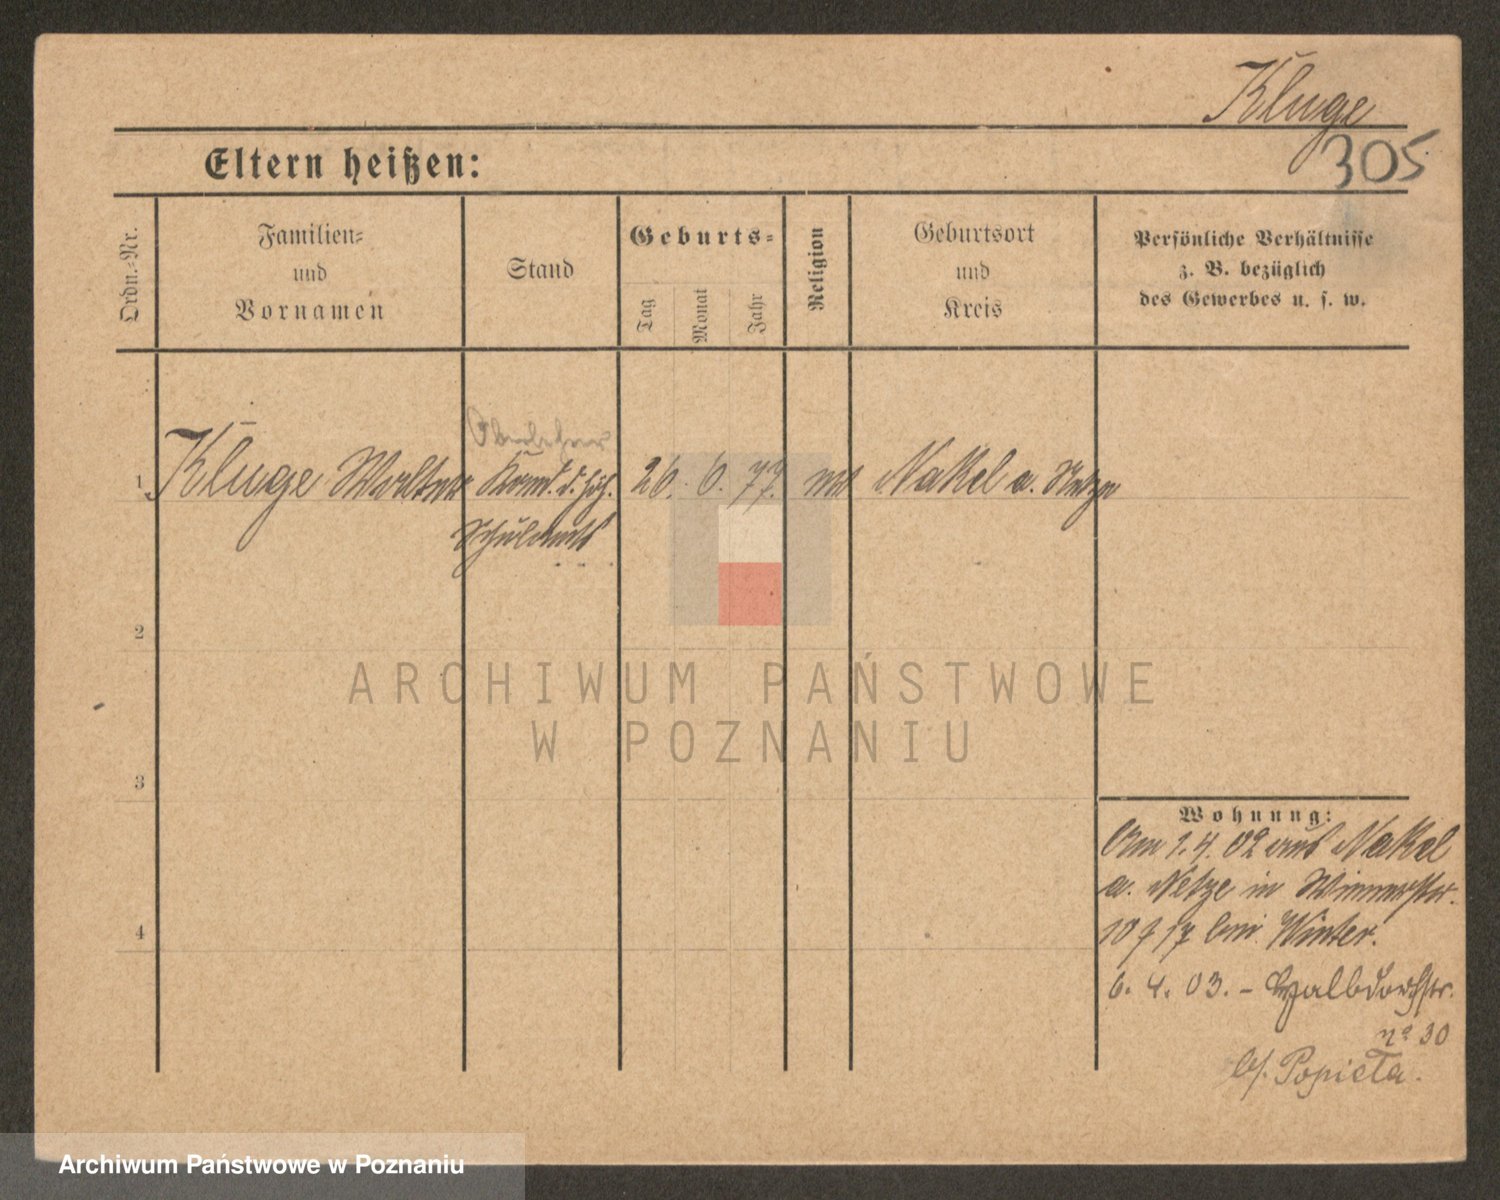 Kluge
305
Eltern heißen:
Ordn.-Nr.
Familien-
und
Vornamen
Stand
Geburts-
Tag
Monat
Jahr
Religion
Geburtsort
und
Kreis
Persönliche Verhältnisse
z. B. bezüglich
des Gewerbes u. s. w.
Oberlehrer
1 Kluge Walter Kand. d. höh. 26. 6. 77. Nakel a. Netze
Schulamts
2
3
4
Wohnung:
Am 1.4.02 aus Nakel
a. Netze in
10 bei Winter.
6. 4. 03. –
no 30
b/. Popieta.
ARCHIWUM PAŃSTWOWE
W POZNANIU
Archiwum Państwowe w Poznaniu